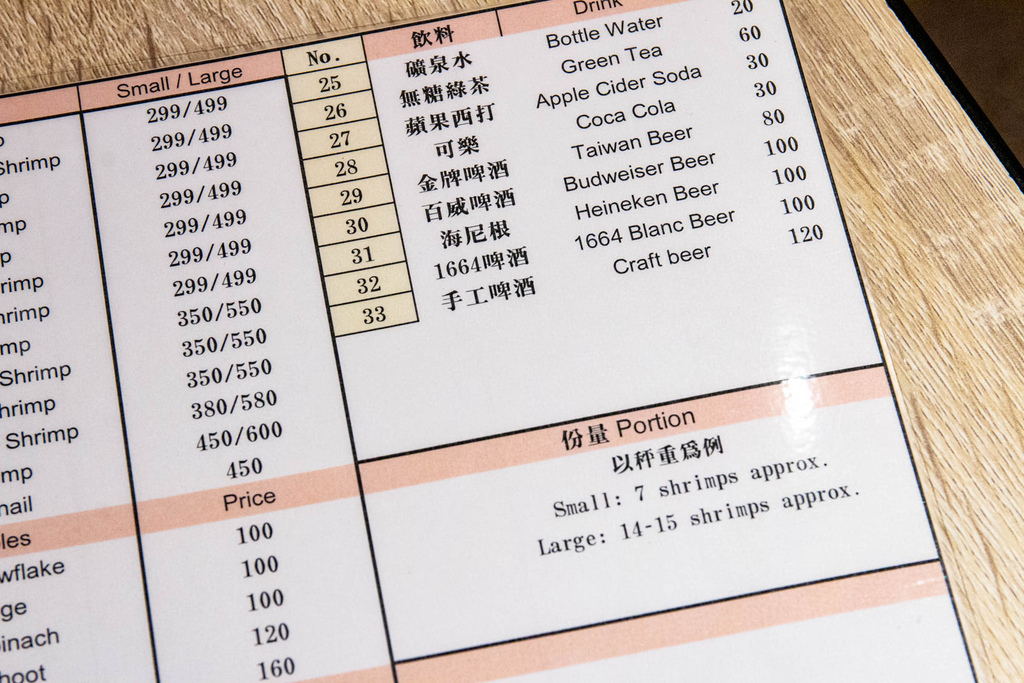 Small / Large
p 299/499
Shrimp 299/499
p 299/499
mp 299/499
p 299/499
rimp 299/499
hrimp 299/499
mp 350/550
Shrimp 350/550
hrimp 350/550
Shrimp 380/580
mp 450/600
nail 450
les Price
wflake 100
ge 100
inach 100
hoot 120
160
No. 飲料 Drink
25 礦泉水 Bottle Water 20
26 無糖綠茶 Green Tea 60
27 蘋果西打 Apple Cider Soda 30
28 可樂 Coca Cola 30
29 金牌啤酒 Taiwan Beer 80
30 百威啤酒 Budweiser Beer 100
31 海尼根 Heineken Beer 100
32 1664啤酒 1664 Blanc Beer 100
33 手工啤酒 Craft beer 120
份量 Portion
以秤重爲例
Small: 7 shrimps approx.
Large: 14-15 shrimps approx.